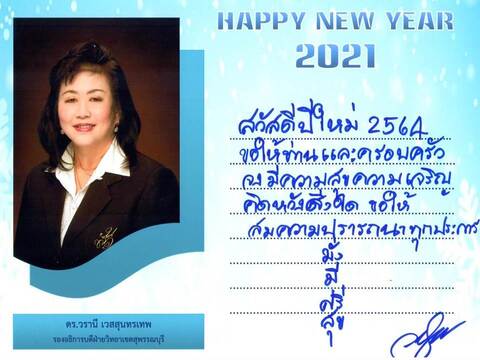 HAPPY NEW YEAR
2021
สวัสดีปีใหม่ 2564
ขอให้ท่านและครอบครัว
จงมีความสุขความเจริญ
คิดหวังสิ่งใด ขอให้
สมความปรารถนาทุกประการ
มั่ง
มี
ศรี
สุข
ดร.วรานี เวสสุนทรเทพ
รองอธิการบดีฝ่ายวิทยาเขตสุพรรณบุรี